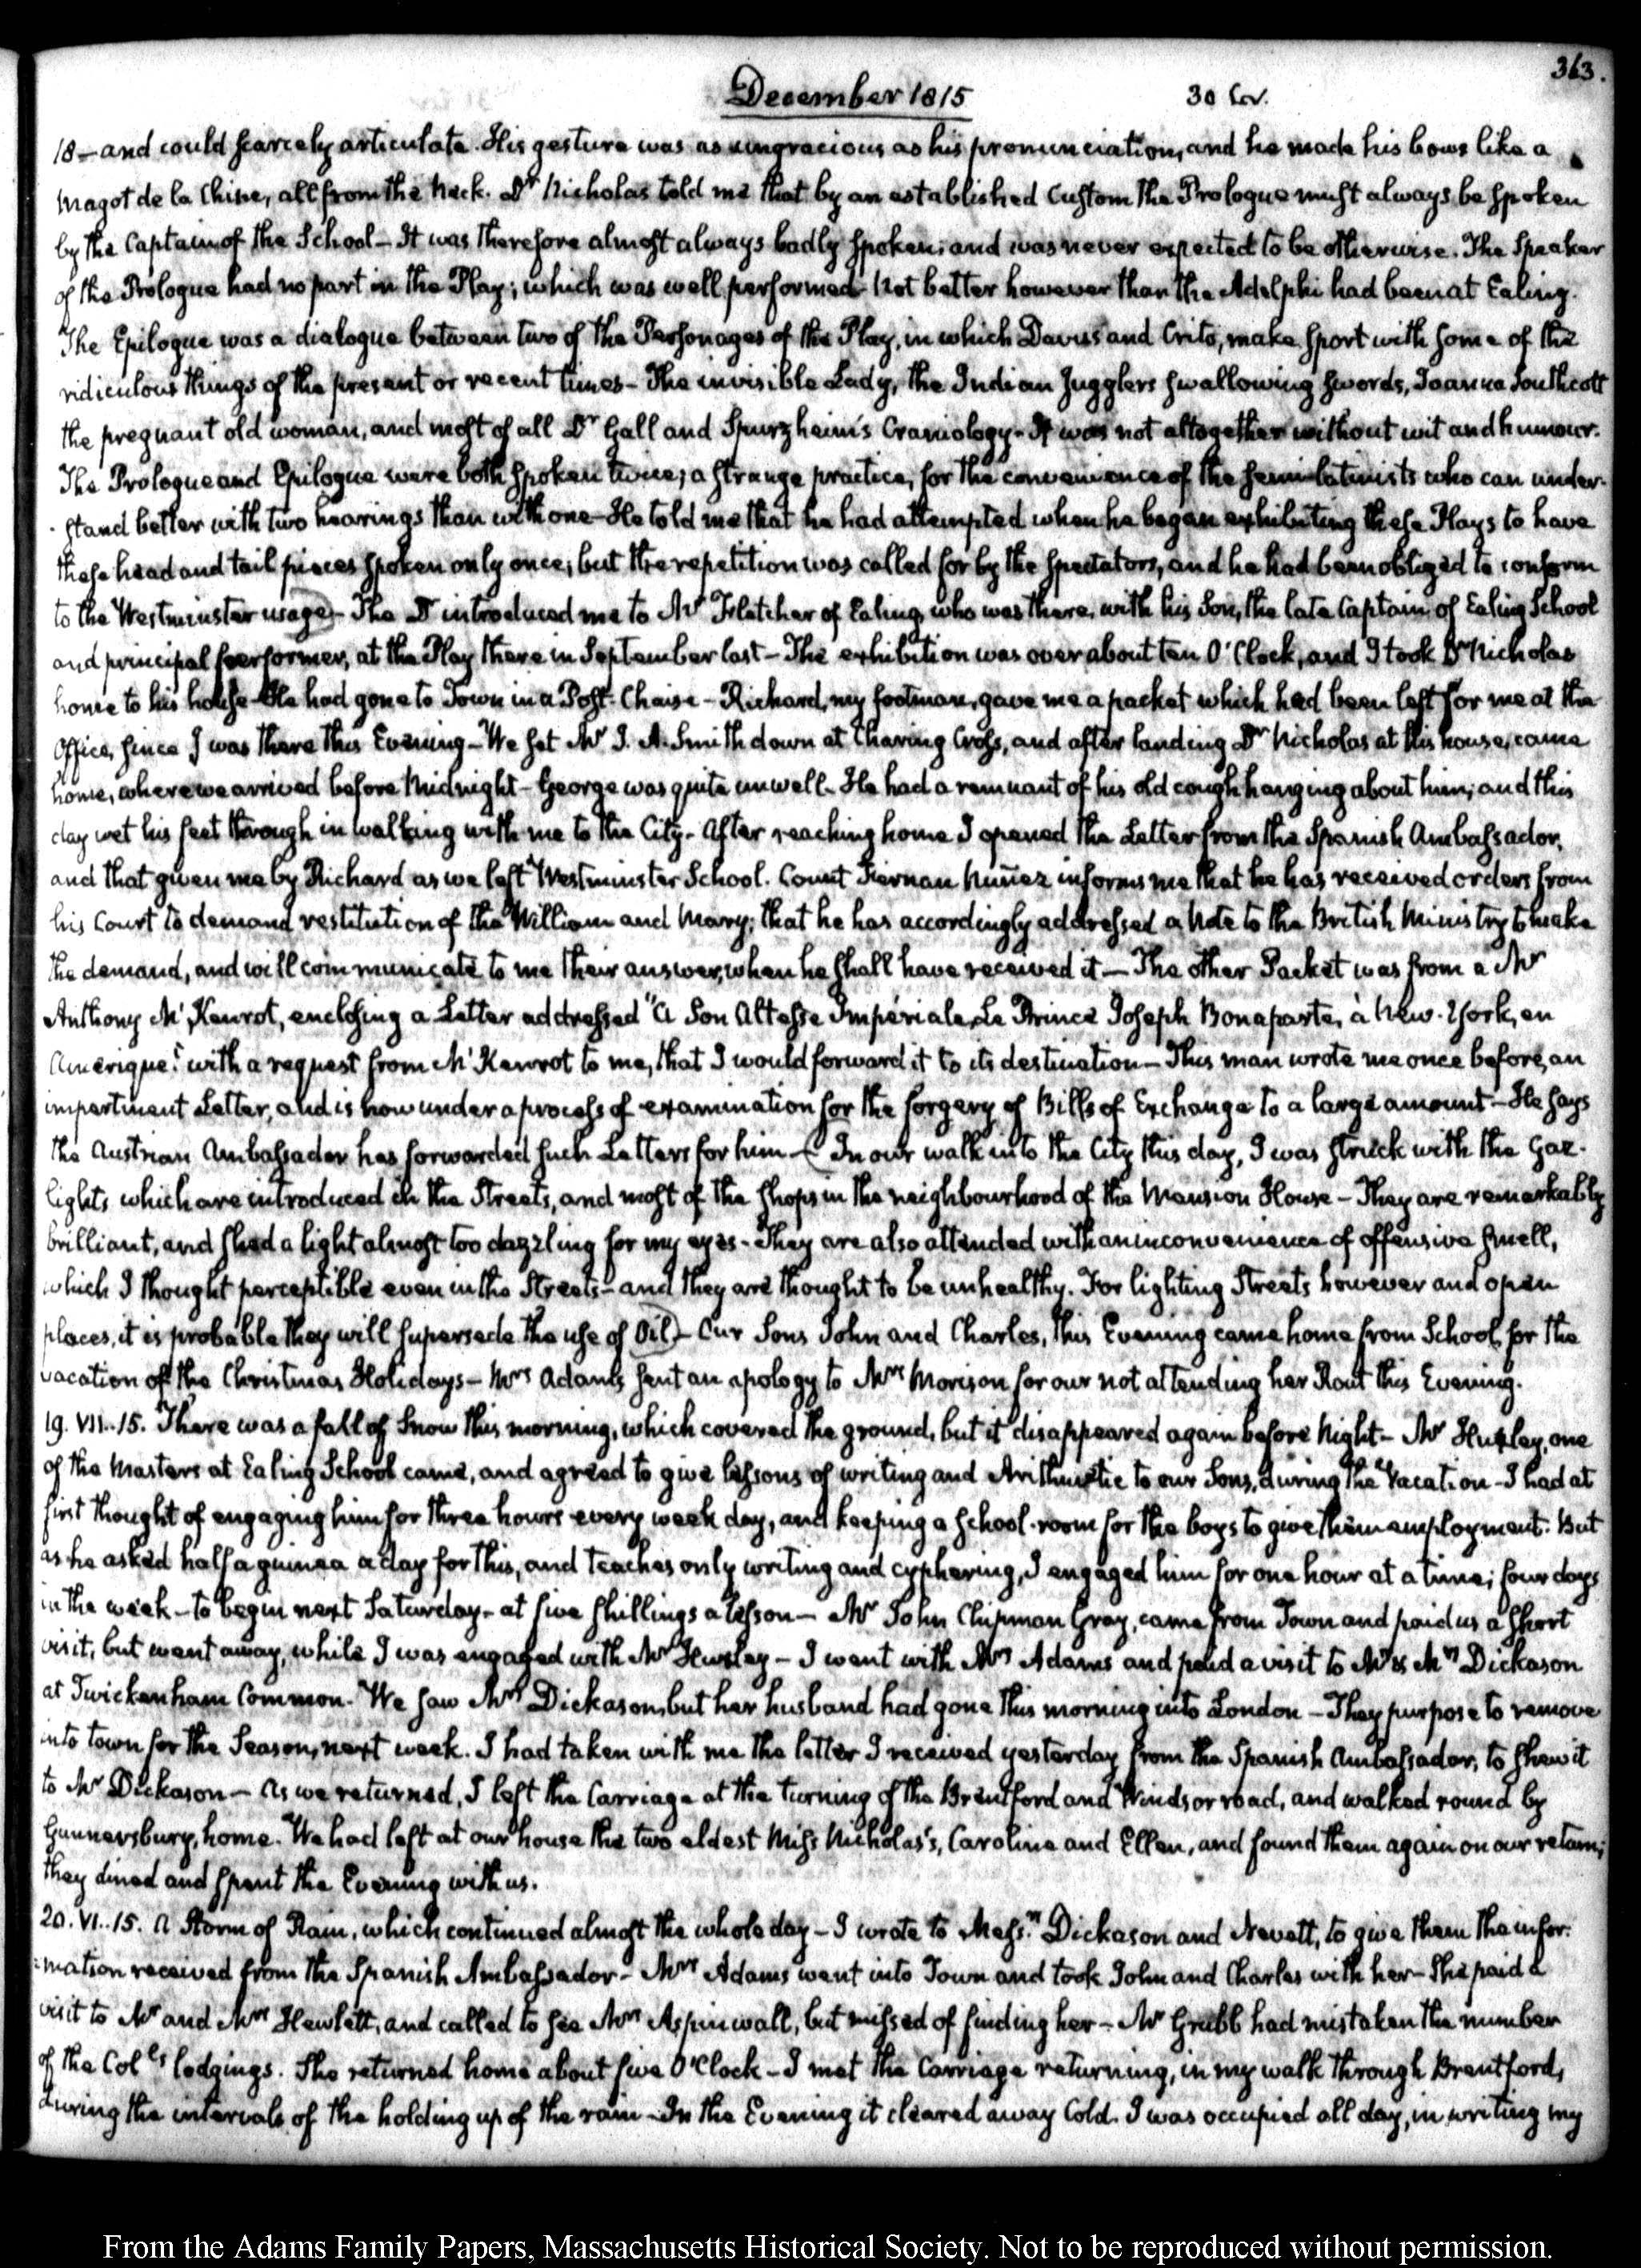 363.
December 1815 30 Cov.
18 – and could scarcely articulate. His gesture was as ungracious as his pronunciation, and he made his bows like a
Magot de la Chine, all from the Neck. Dr Nicholas told me that by an established Custom the Prologue must always be spoken
by the Captain of the School – It was therefore almost always badly spoken; and was never expected to be otherwise. The Speaker
of the Prologue had no part in the Play; which was well performed – Not better however than the Adelphi had been at Ealing.
The Epilogue was a dialogue between two of the Personages of the Play, in which Davus and Crito, make sport with some of the
ridiculous things of the present or recent times – The invisible Lady, the Indian Jugglers swallowing swords, Joanna Southcott
the pregnant old woman, and most of all Dr Gall and Spurzheim's Craniology – It was not altogether without wit and humour.
The Prologue and Epilogue were both spoken twice; a strange practice, for the convenience of the semi-latinists who can under-
stand better with two hearings than with one – He told me that he had attempted when he began exhibiting these Plays to have
these head and tail pieces spoken only once; but the repetition was called for by the Spectators, and he had been obliged to conform
to the Westminster usage – The Dr introduced me to Mr Fletcher of Ealing, who was there, with his Son, the late Captain of Ealing School
and principal performer, at the Play there in September last – The exhibition was over about ten O'Clock, and I took Dr Nicholas
home to his house – He had gone to Town in a Post-Chaise – Richard, my footman, gave me a packet which had been left for me at the
Office, since I was there this Evening – We set Mr J. A. Smith down at Charing Cross, and after landing Dr Nicholas at his house, came
home, where we arrived before Midnight – George was quite unwell. He had a remnant of his old cough hanging about him; and this
day wet his feet through in walking with me to the City – After reaching home I opened the Letter from the Spanish Ambassador,
and that given me by Richard as we left Westminster School. Count Fernan Nuñez informs me that he has received orders from
his Court to demand restitution of the William and Mary; that he has accordingly addressed a Note to the British Ministry to make
the demand, and will communicate to me their answer, when he shall have received it – The other Packet was from a Mr
Anthony McKenrot, enclosing a Letter addressed "A Son Altesse Impériale, Le Prince Joseph Bonaparte, à New-York, en
Amérique" with a request from McKenrot to me, that I would forward it to its destination – This man wrote me once before, an
impertinent Letter, and is now under a process of examination for the forgery of Bills of Exchange to a large amount – He says
the Austrian Ambassador has forwarded such Letters for him – (In our walk into the City this day, I was struck with the Gaz-
lights which are introduced in the Streets, and most of the shops in the neighbourhood of the Mansion House – They are remarkably
brilliant, and shed a light almost too dazzling for my eyes – They are also attended with an inconvenience of offensive smell,
which I thought perceptible even in the Streets – and they are thought to be unhealthy. For lighting Streets however and open
places, it is probable they will supersede the use of Oil) – Our Sons John and Charles, this Evening came home from School, for the
vacation of the Christmas Holidays – Mrs Adams sent an apology to Mrs Morison for our not attending her Rout this Evening.
19. VII..15. There was a fall of Snow this morning, which covered the ground, but it disappeared again before Night – Mr Huxley, one
of the Masters at Ealing School came, and agreed to give lessons of writing and Arithmetic to our Sons, during the Vacation – I had at
first thought of engaging him for three hours every week day, and keeping a school-room for the boys to give them employment. But
as he asked half a guinea a day for this, and teaches only writing and cyphering, I engaged him for one hour at a time; four days
in the week – to begin next Saturday – at five shillings a lesson – Mr John Chipman Gray, came from Town and paid us a short
visit, but went away, while I was engaged with Mr Huxley – I went with Mrs Adams and paid a visit to Mr & Mrs Dickason
at Twickenham Common. We saw Mrs Dickason, but her husband had gone this morning into London – They purpose to remove
into town for the Season, next week. I had taken with me the letter I received yesterday from the Spanish Ambassador, to shew it
to Mr Dickason – As we returned, I left the Carriage at the turning of the Brentford and Windsor road, and walked round by
Gunnersbury, home. We had left at our house the two eldest Miss Nicholas's, Caroline and Ellen, and found them again on our return;
they dined and spent the Evening with us.
20. VI..15. A Storm of Rain, which continued almost the whole day – I wrote to Messrs Dickason and Nevett, to give them the infor-
mation received from the Spanish Ambassador – Mrs Adams went into Town and took John and Charles with her – She paid a
visit to Mr and Mrs Hewlett, and called to see Mrs Aspinwall, but missed of finding her – Mr Grubb had mistaken the number
of the Colls lodgings. She returned home about five O'Clock – I met the Carriage returning, in my walk through Brentford,
during the intervals of the holding up of the rain – In the Evening it cleared away Cold. I was occupied all day, in writing my
From the Adams Family Papers, Massachusetts Historical Society. Not to be reproduced without permission.